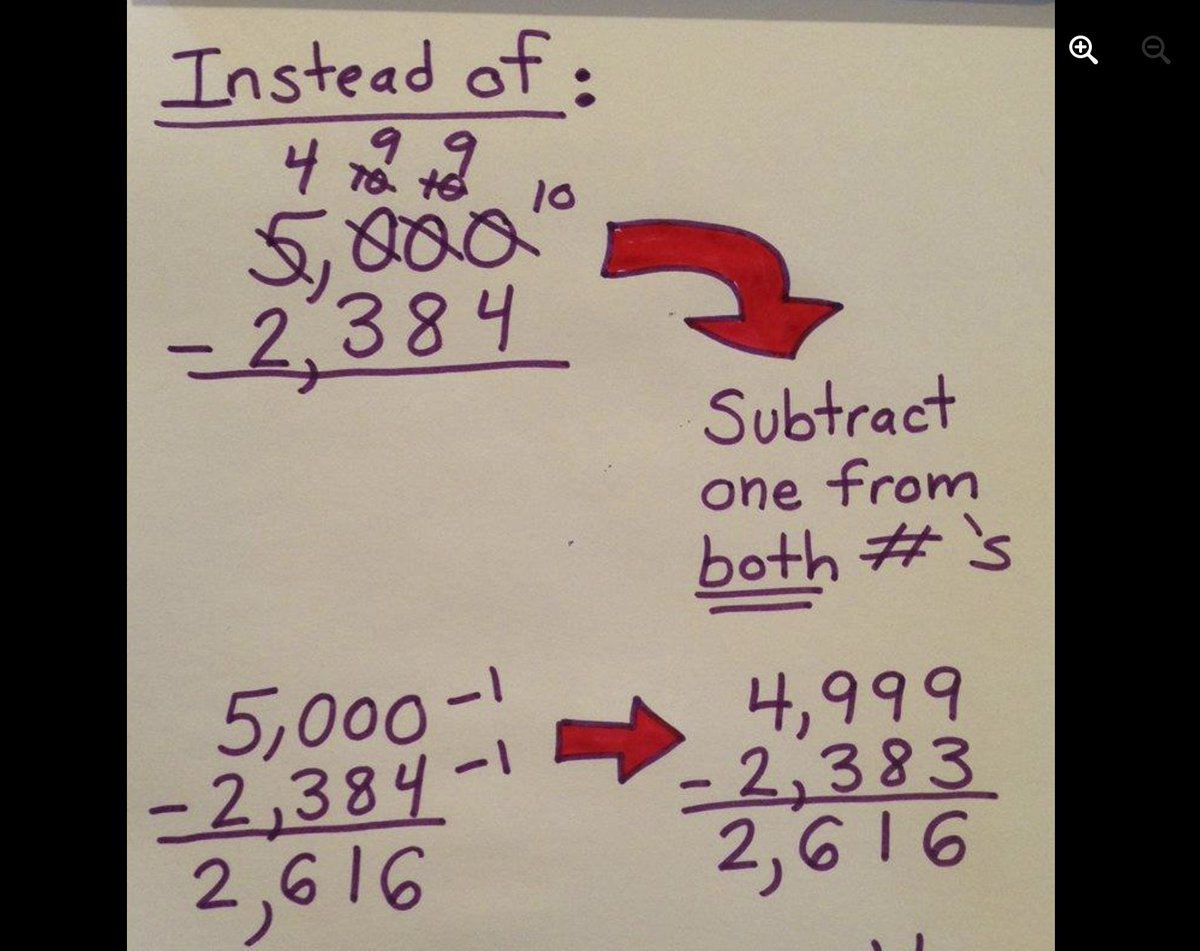 Instead of:
4 9 9
10 10 10
5,000
- 2,384
Subtract
one from
both #'s
5,000 -1
- 2,384 -1
2,616
4,999
- 2,383
2,616